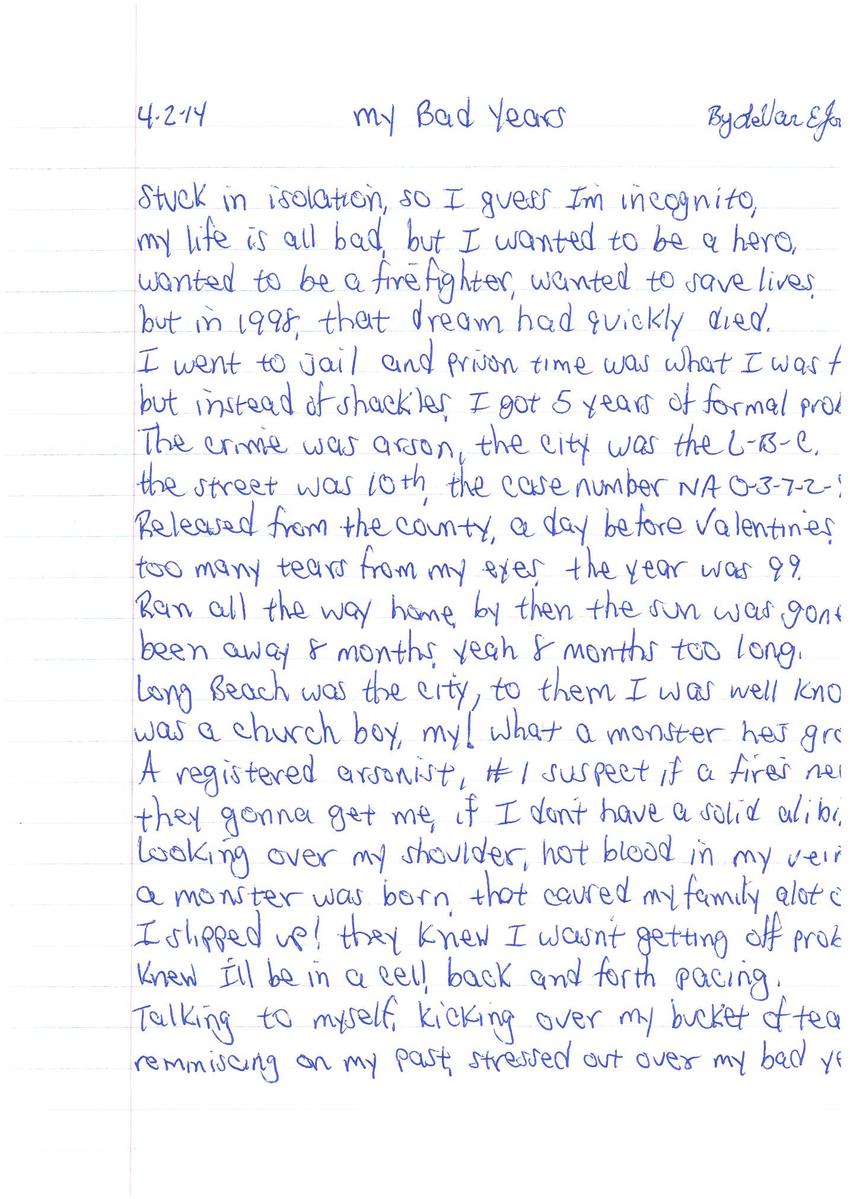 4-2-14 my Bad Years
Stuck in isolation, so I guess I'm incognito,
my life is all bad, but I wanted to be a hero,
wanted to be a firefighter, wanted to save lives,
but in 1998, that dream had quickly died.
I went to jail and prison time was what I was
but instead of shackles, I got 5 years of formal
The crime was arson, the city was the L-B-C.
the street was 10th, the case number NA 0-3-7-2-
Released from the county, a day before Valentines,
too many tears from my eyes, the year was 99.
Ran all the way home, by then the sun was
been away 8 months, yeah 8 months too long.
Long Beach was the city, to them I was well
was a church boy, my! what a monster hes
A registered arsonist, #1 suspect if a fire's
they gonna get me, if I don't have a solid alibi,
Looking over my shoulder, hot blood in my
a monster was born, that caused my family alot
I slipped up! they knew I wasn't getting off
Knew I'll be in a cell, back and forth pacing.
Talking to myself, kicking over my bucket of
remmiscing on my past, stressed out over my bad